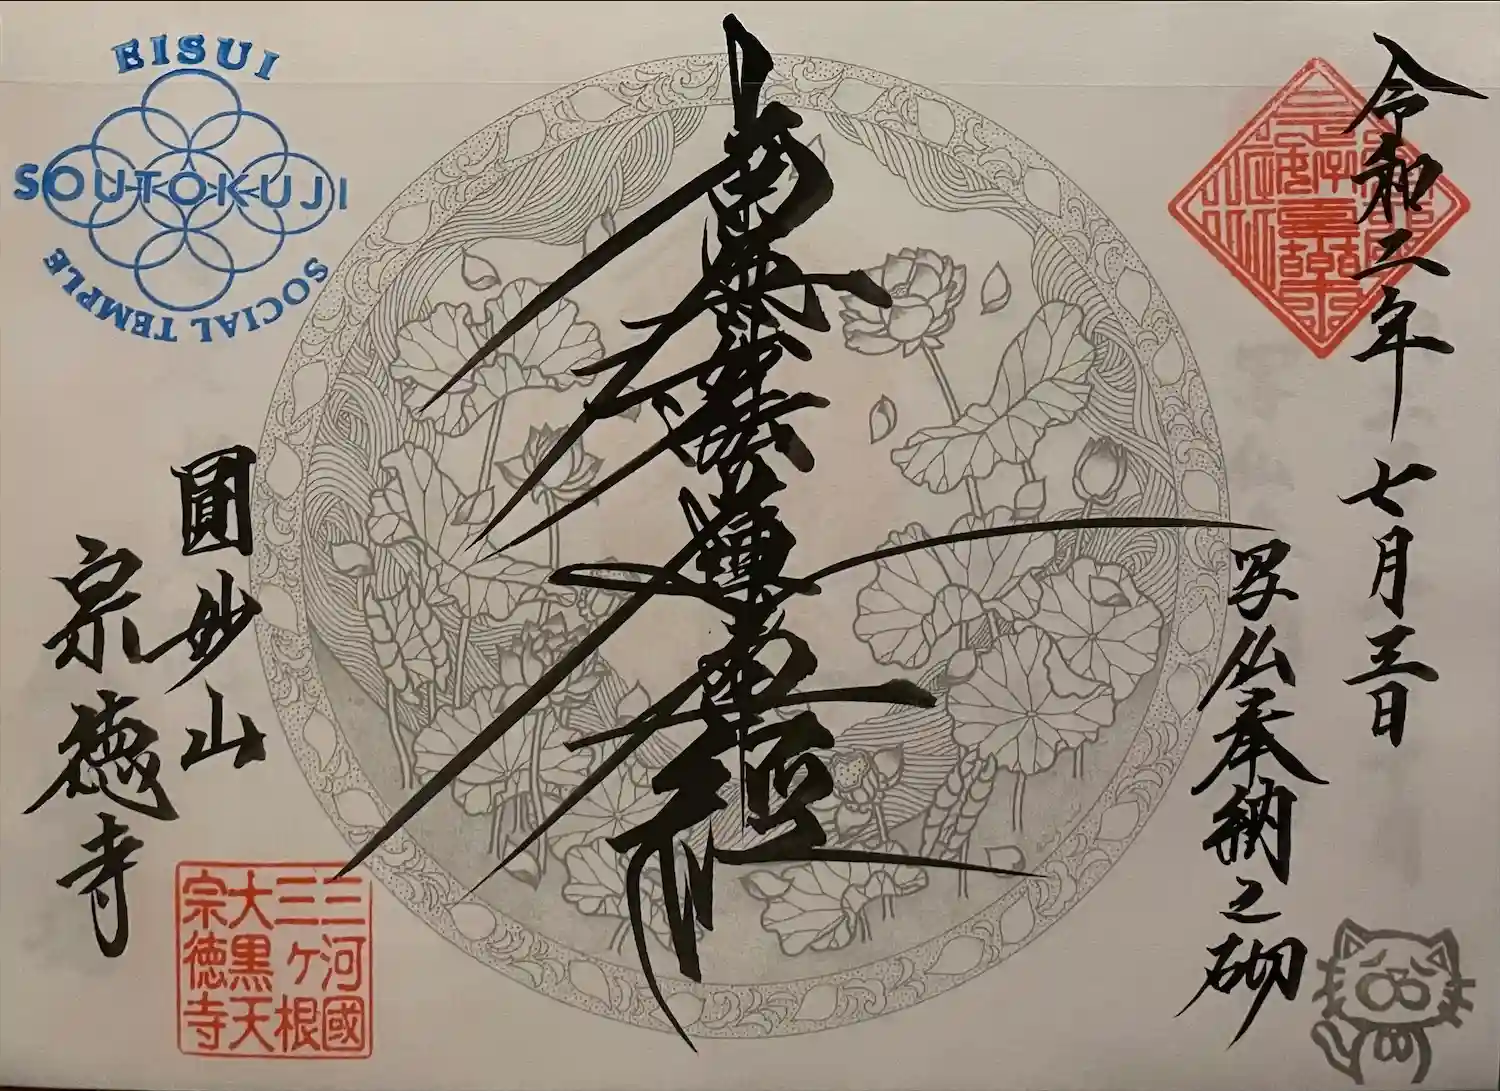 令和二年 七月三日
写仏奉納之砌
南無妙法蓮華経
圓妙山
宗徳寺
EISUI
SOUTOKUJI
SOCIAL TEMPLE
三河國
三ヶ根
大黒天
宗徳寺